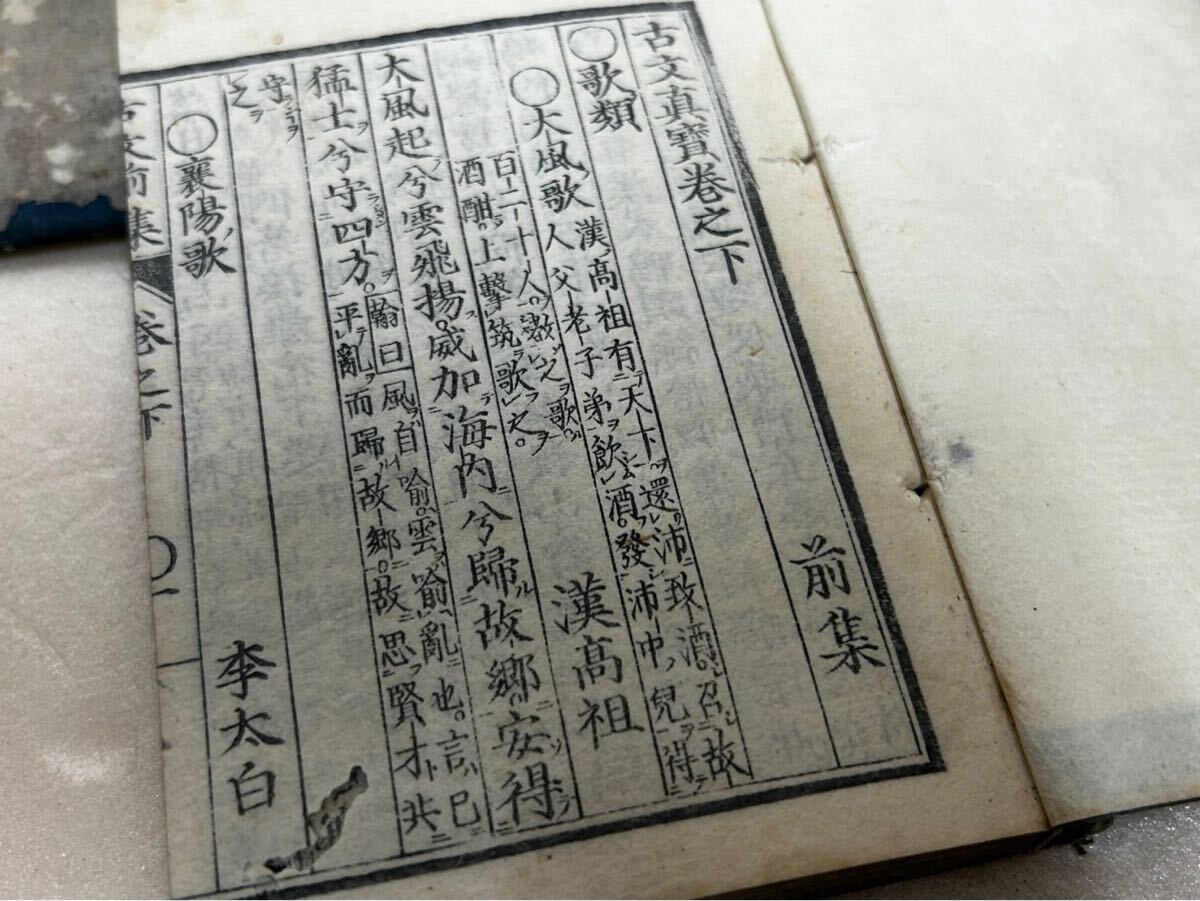 古文真寶卷之下 前集
○歌類
○大風歌
漢高祖有天下還沛致酒召故
人父老子弟飲酒發沛中兒得
百二十人教之歌
酒酣上擊筑歌之。
漢高祖
大風起兮雲飛揚。威加海內兮歸故鄉安得
猛士兮守四方。
翰曰風自喻。雲喻亂也。言已
平亂而歸故鄉。故思賢才共
守
之
○襄陽歌 李太白
古文前集 卷之下 ○一